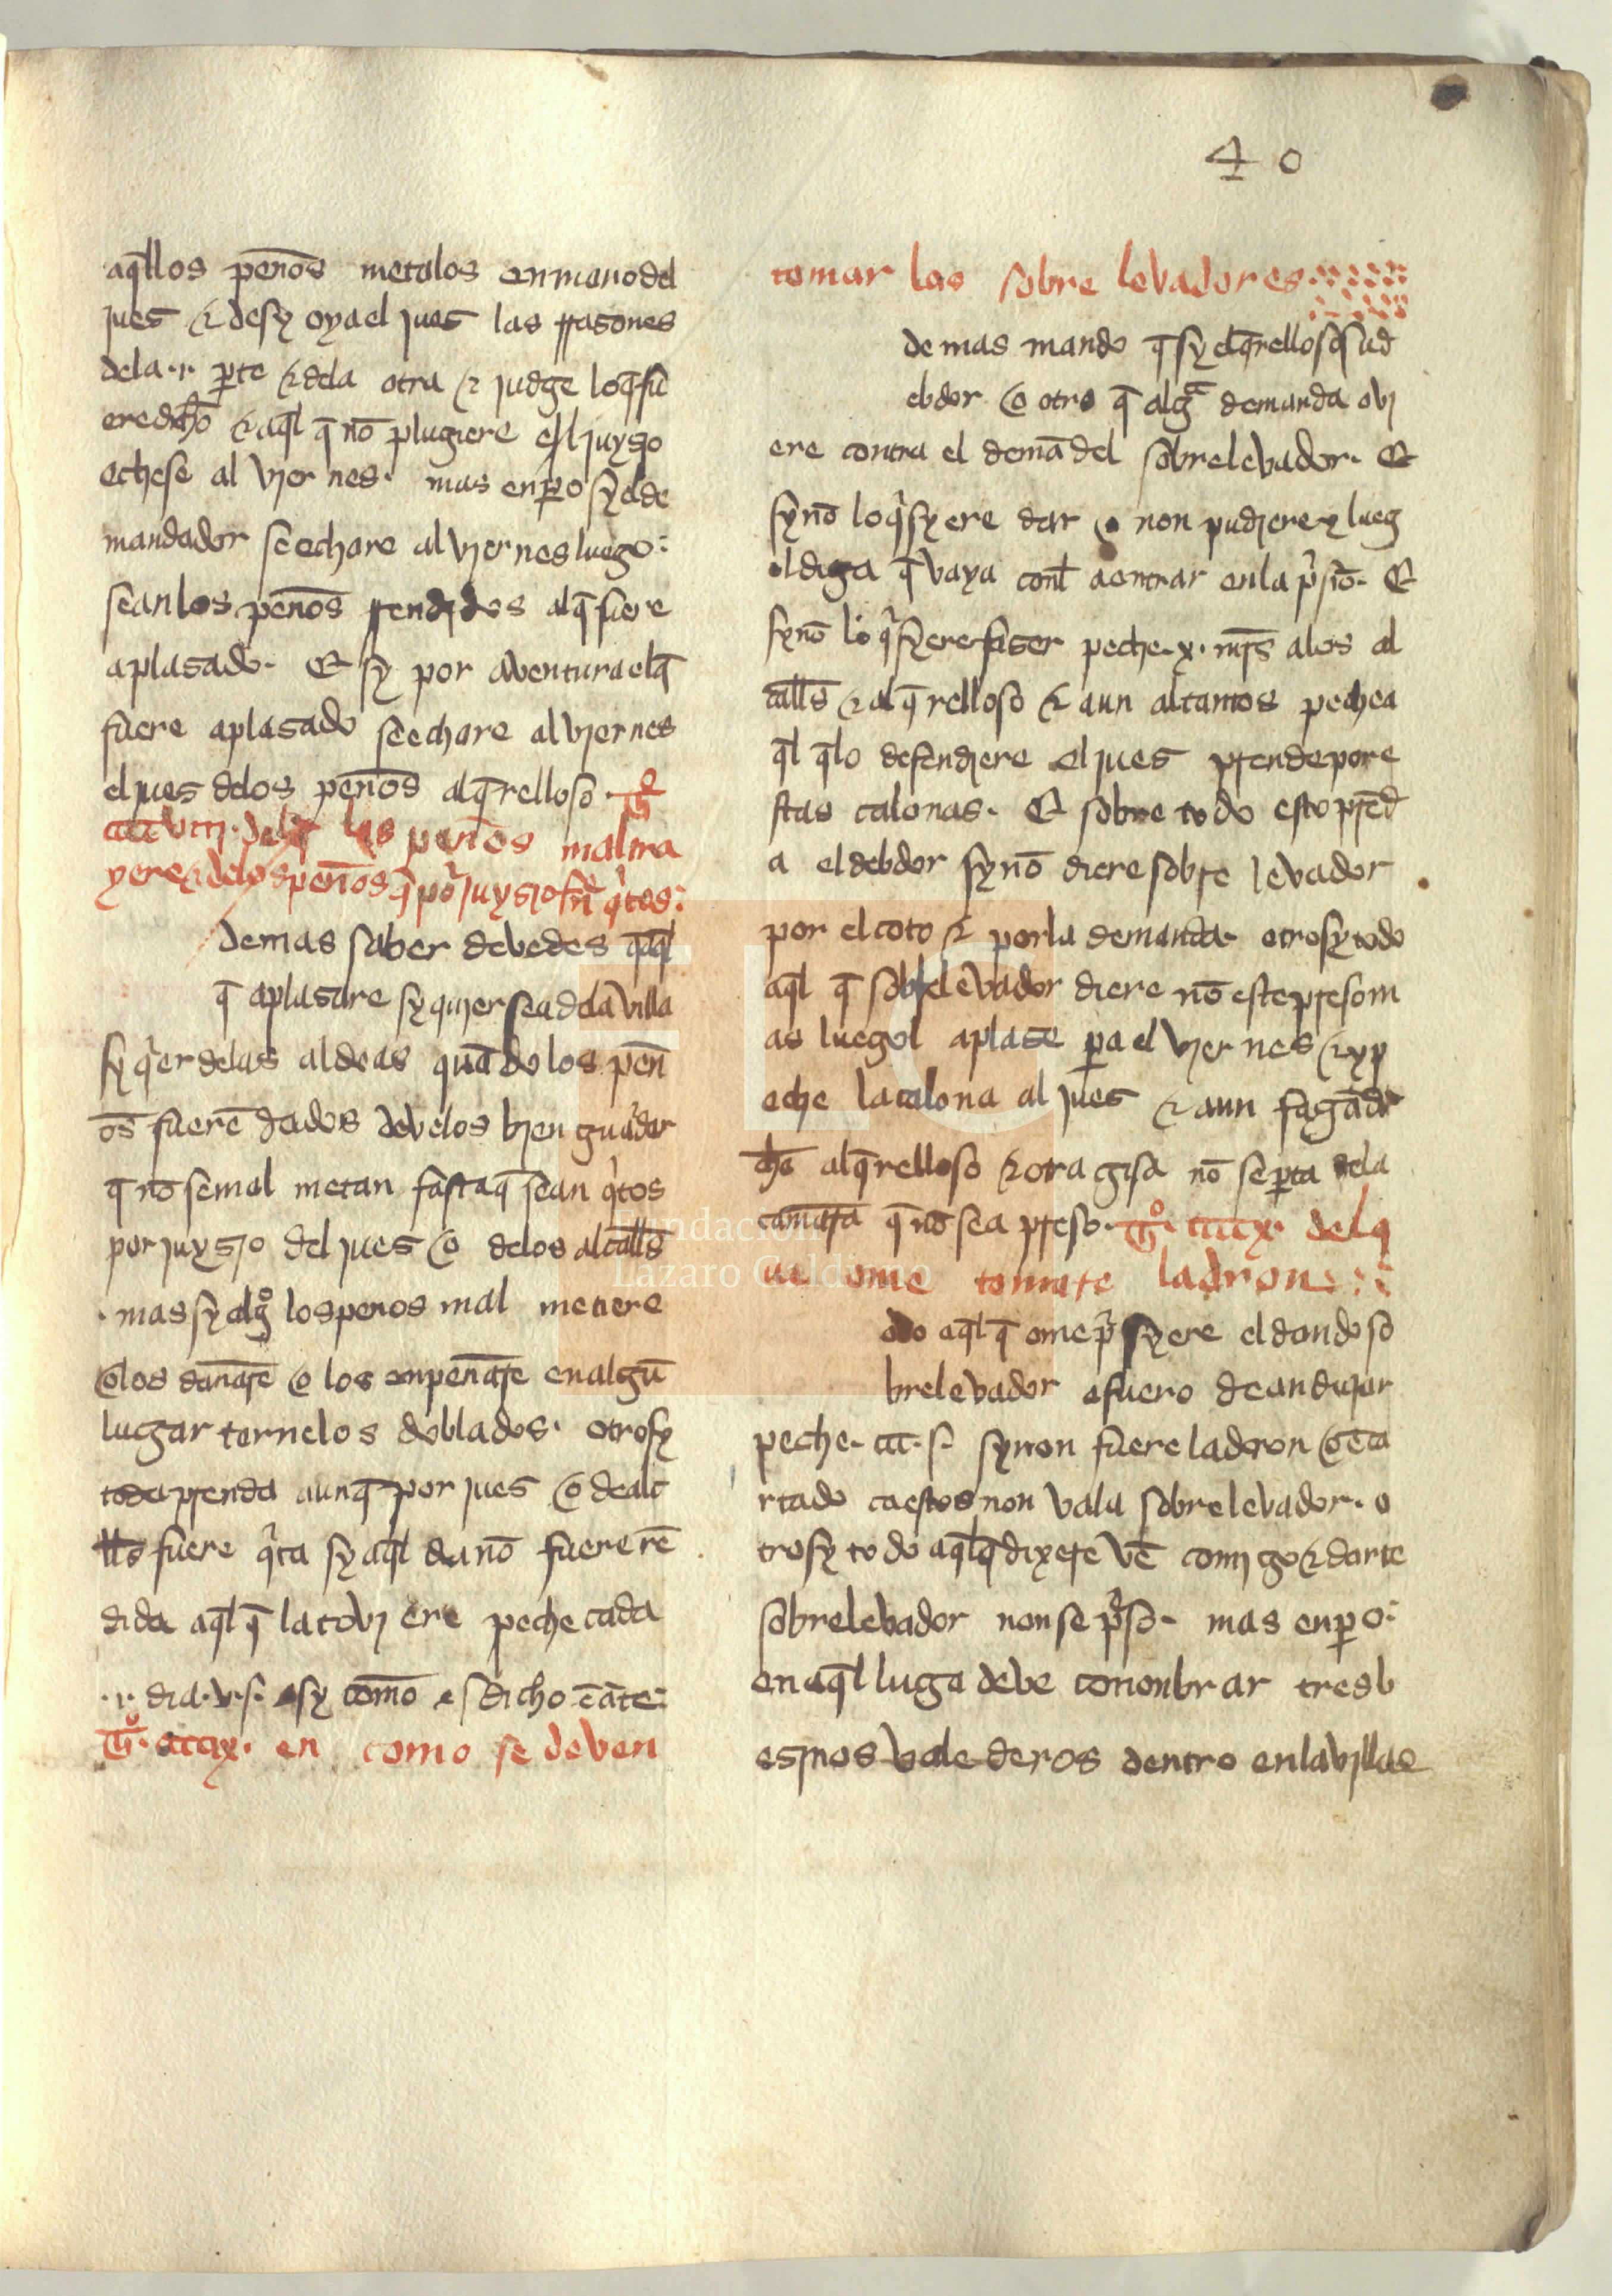 40
aq̄llos peños metalos en mano del
jues & desy oya el jues las rrasones
dela .i. p̱te & dela otra & judge loq̄ fu
ere dicħo & aq̄l q̄ nō plugiere el juysio
echese al viernes. mas enp̱o sy el de
mandador se echare al viernes luego
sean los peños rrendidos al q̄ fuere
aplasado. Et sy por aventura el q̄
fuere aplasado se echare al viernes
el jues delos peños al q̄relloso.
los peños malma
yere & delos peños q̄ por juysio q̇tos
demas saber devedes q̄ aq̄l
q̄ aplasare sy quier sea dela villa
sy q̇er delas aldeas quādo los peñ
os fuerē dados develos bien guardar
q̄ nō se mal metan fasta q̄ sean q̇tos
por juysio del jues o delos alcalłs
mas sy algo los penos mal metiere
o los dañare o los enpeñare en algū
lugar tornelos doblados. otrosy
toda prenda aunq̄ por jues o de alc
lłs fuere q̇ta sy aq̄l dia nō fuere rē
dida aq̄l q̄ la toviere peche cada
.i. dia .v. s. asy como es dicho ēāte
en como se deven
tomar los sobre levadores
demas mando q̄ sy el q̄relloso su d
ebdor o otro q̄ alga demanda ovi
ere contra el demādel sobrelevador. Et
sy nō lo q̇syere dar o non pudiere y lueg
ol diga q̄ vaya conl a entrar en la ṗsiō. Et
sy nō lo q̇syere faser peche .x. mr̄s alos al
callš & al q̄relloso & aun altantos peche a
q̄l q̄ lo defendiere el jues prende por e
stas calonas. Et sobre todo esto prēd
a el debdor sy nō diere sobre levador
por el coto & por la demanda. otrosy todo
aq̄l q̄ sobrelevador diere nō este preso m
as luegol aplase p̱a el viernes & y p
eche la calona al jues & aun faga de
cħo al q̄relloso & otra gisa nō se p̱ta dela
camara q̄ nō sea preso. del q
ue ome tomare ladron
odo aq̄l q̄ ome ṗsyere el dando so
brelevador a fuero de andujar
peche. s. sy non fuere ladron o ēca
rtado ca estos non vala sobrelevador. o
trosy todo aq̄l q̄ dixere vē comigo & darte
sobrelevador non se ṗso. mas enp̱o
en aq̄l luga debe conombrar tres b
esinos valederos dentro en la villa e